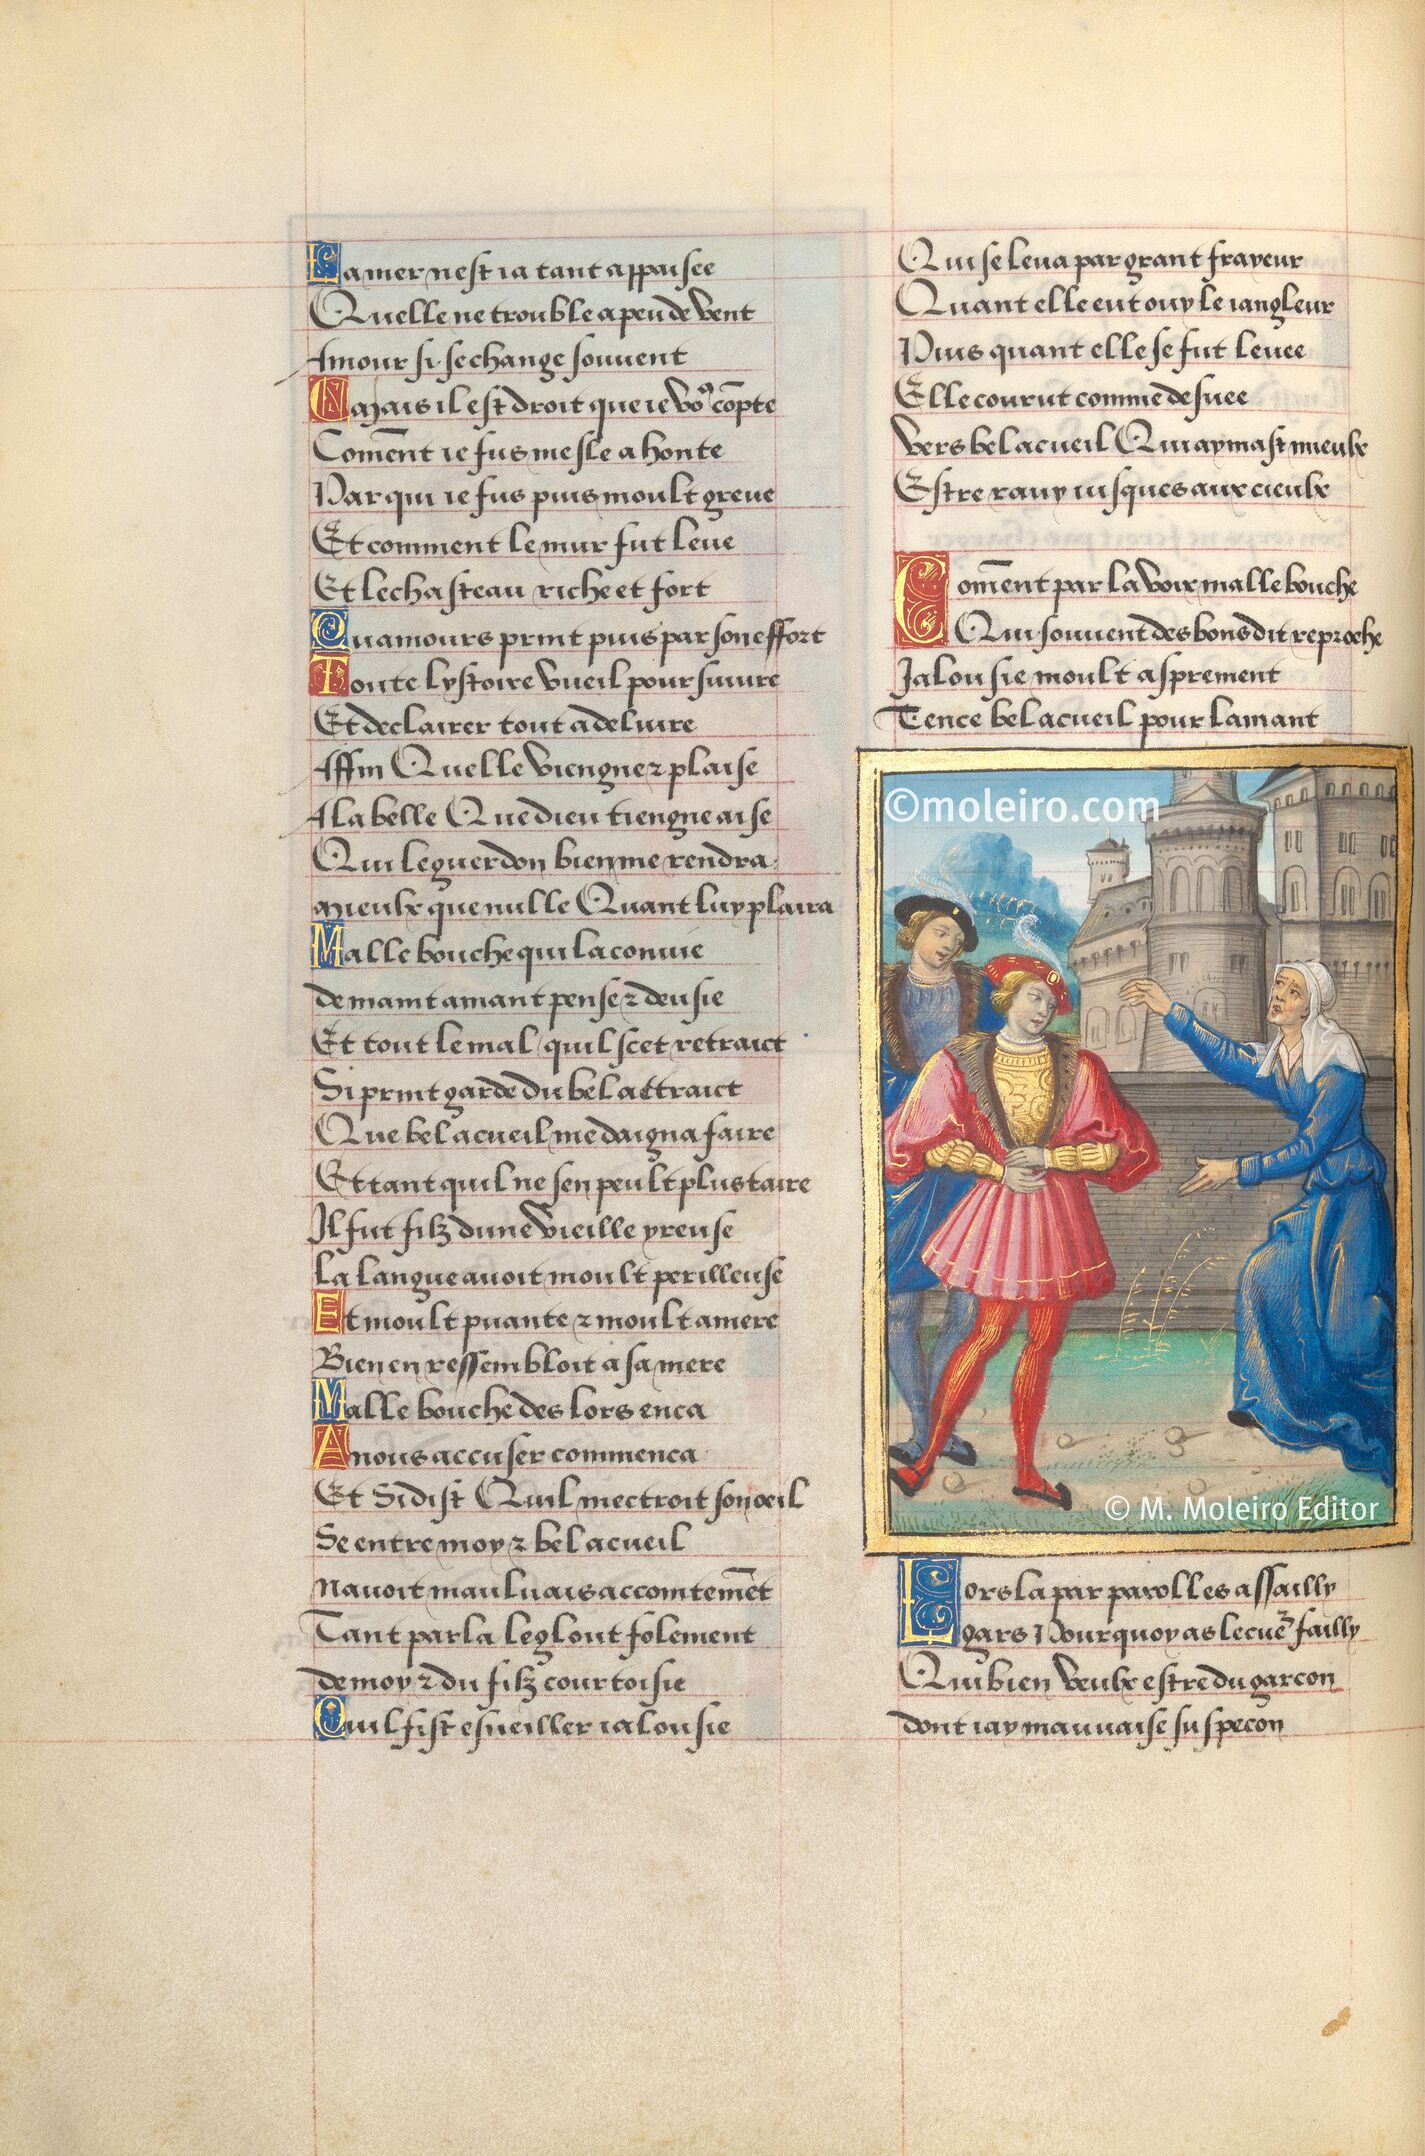 La mer nest ia tant appaisee
Quelle ne trouble a peu de vent
Amour si se change souuent
Mais il est droit que ie vo9 cõpte
Comẽnt ie fus mesle a honte
Par qui ie fus puis moult greue
Et comment le mur fut leue
Et le chasteau riche et fort
Quamours print puis par son effort
Toute lystoire vueil poursuiure
Et declairer tout a deliure
Affin Quelle viengne z plaise
A la belle Que dieu tiengne aise
Qui le guerdon bien me rendra
Mieulx que nulle Quant luy plaira
Malle bouche qui la couuie
de maint amant pense z deuise
Et tout le mal quil scet retraict
Si print garde du bel attraict
Que bel acueil me daigna faire
Et tant quil ne sen peult plus taire
Il fut filz dune vieille yreuse
La langue auoit moult perilleuse
Et moult puante z moult amere
Bien en ressembloit a sa mere
Malle bouche des lors enca
A nous accuser commenca
Et Si dist Quil mectroit son oeil
Se entre moy z bel acueil
Nauoit mauluais accointemẽt
Tant parla le glout folement
de moy z du filz courtoisie
Quil fist esueiller ialousie
Qui se leua par grant frayeur
Quant elle eut ouy le iangleur
Puis quant elle se fut leuee
Elle courut comme desuee
vers bel acueil Qui aymast mieulx
Estre rauy iusques aux cieulx
Comẽnt par la voix malle bouche
Qui souuent des bons dit reproche
Jalousie moult asprement
Tence bel acueil pour lamant
©moleiro.com
© M. Moleiro Editor
Lors la par parolles assailly
Egars Pourquoy as le cuer failly
Qui bien veulx estre du garcon
dont iay mauuaise suspecon